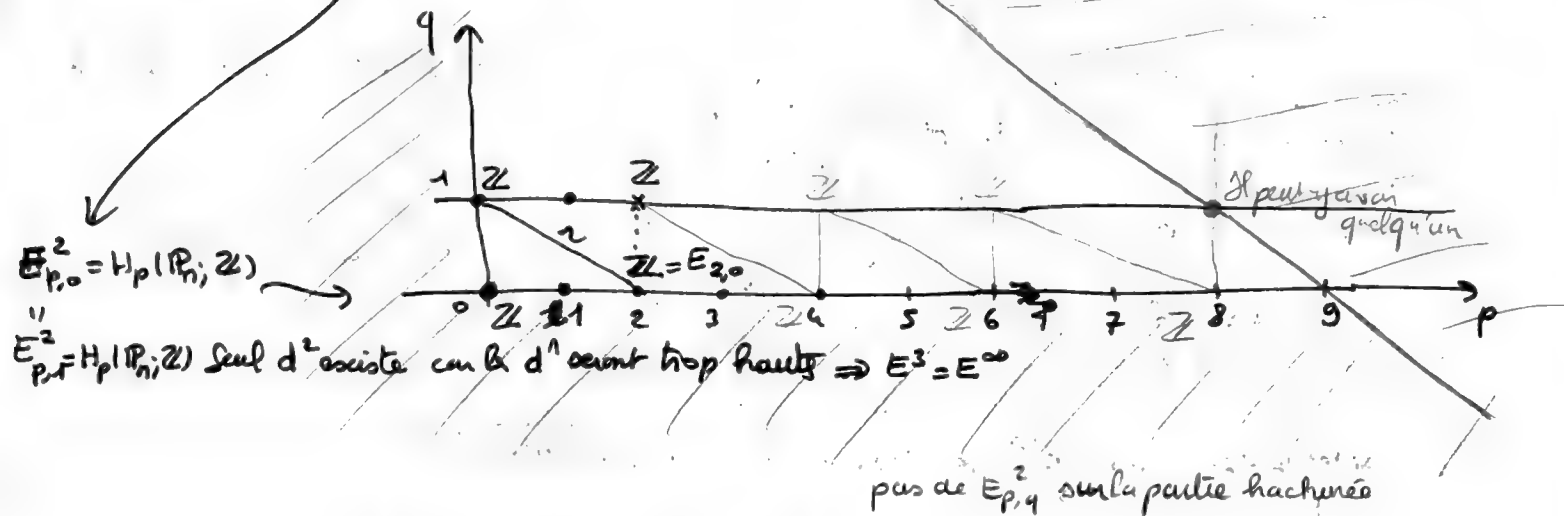 q
1 ℤ ℤ ℤ
Il peut y avoir
quelqu'un
2
E²_{p,0} = H_p(ℙ_n; ℤ)
ℤ = E_{2,0}
0 ℤ 1 2 3 ℤ 4 5 ℤ 6 7 ℤ 8 9 p
"
E²_{p,1} = H_p(ℙ_n; ℤ) Seul d² existe car les d^r seront trop hauts ⇒ E³ = E^∞
pas de E²_{p,q} sur la partie hachurée